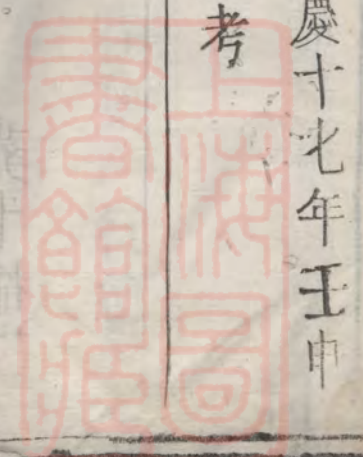 慶十七年壬申
考
上海圖書館藏